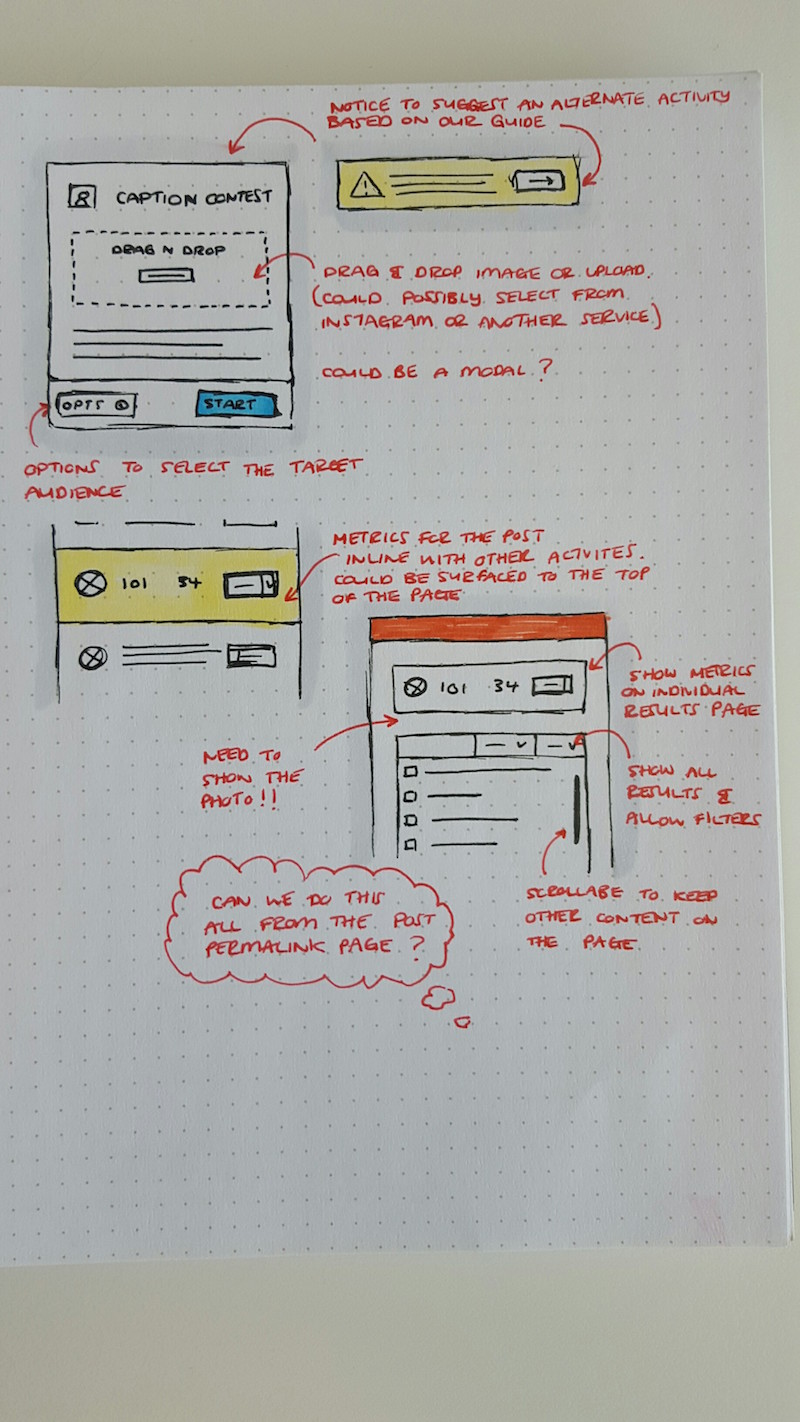 NOTICE TO SUGGEST AN ALTERNATE ACTIVITY
BASED ON OUR GUIDE
CAPTION CONTEST
DRAG N DROP
DRAG & DROP IMAGE OR UPLOAD.
(COULD POSSIBLY SELECT FROM
INSTAGRAM OR ANOTHER SERVICE)
COULD BE A MODAL?
OPTS
START
OPTIONS TO SELECT THE TARGET
AUDIENCE
METRICS FOR THE POST
INLINE WITH OTHER ACTIVITES.
COULD BE SURFACED TO THE TOP
OF THE PAGE
101 34
101 34
SHOW METRICS
ON INDIVIDUAL
RESULTS PAGE
NEED TO
SHOW THE
PHOTO!!
SHOW ALL
RESULTS &
ALLOW FILTERS
SCROLLABE TO KEEP
OTHER CONTENT ON
THE PAGE
CAN WE DO THIS
ALL FROM THE POST
PERMALINK PAGE?